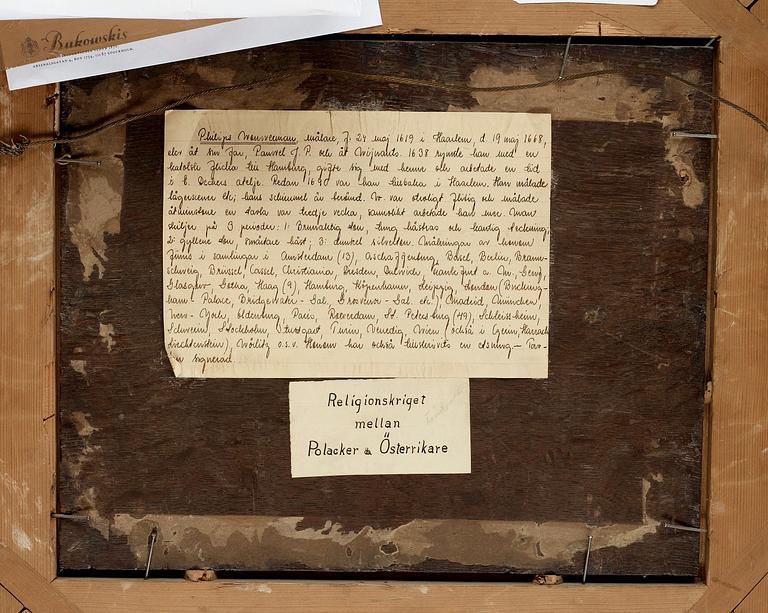 Bukowskis
ARSENALSGATAN 4, BOX 1754, 111 87 STOCKHOLM.
Philips Wouwerman, målare, f. 24 maj 1619 i Haarlem, d. 19 maj 1668,
elev åt sin far, Pauwel J. P. och åt Wijnants. 1638 rymde han med en
katolsk flicka till Hamburg, gifte sig med henne och arbetade en tid
i E. Deckers ateljé. Redan 1640 var han tillbaka i Haarlem. Han målade
lägerscener etc; hans schimmel är berömd. W. var otroligt flitig och målade
åtminstone en tavla var tredje vecka, sannolikt arbetade han mer. Man
skiljer på 3 perioder: 1: Brunaktig ton, tung hästras och kantig teckning,
2: gyllene ton, smärtare häst; 3: dunkel silverton. Målningar av honom
finns i samlingar i Amsterdam (13), Aschaffenburg, Basel, Berlin, Braun-
schweig, Brüssel, Cassel, Christiania, Dresden, Dulwich, Frankfurt a. M., Genf,
Glasgow, Gotha, Haag (9), Hamburg, Köpenhamn, Leipzig, London (Bucking-
ham-Palace, Bridgewater-Gal., Grosvenor-Gal. etc.) Madrid, München,
New-York, Oldenburg, Paris, Rotterdam, St. Petersburg (49), Schleissheim,
Schwerin, Stockholm, Stuttgart, Turin, Venedig, Wien (också i Czernin, Harrach,
Liechtenstein), Wörlitz o.s.v. Honom har också tillskrivits en etsning. – Tav-
lan signerad.
Religionskriget
mellan
Polacker & Österrikare